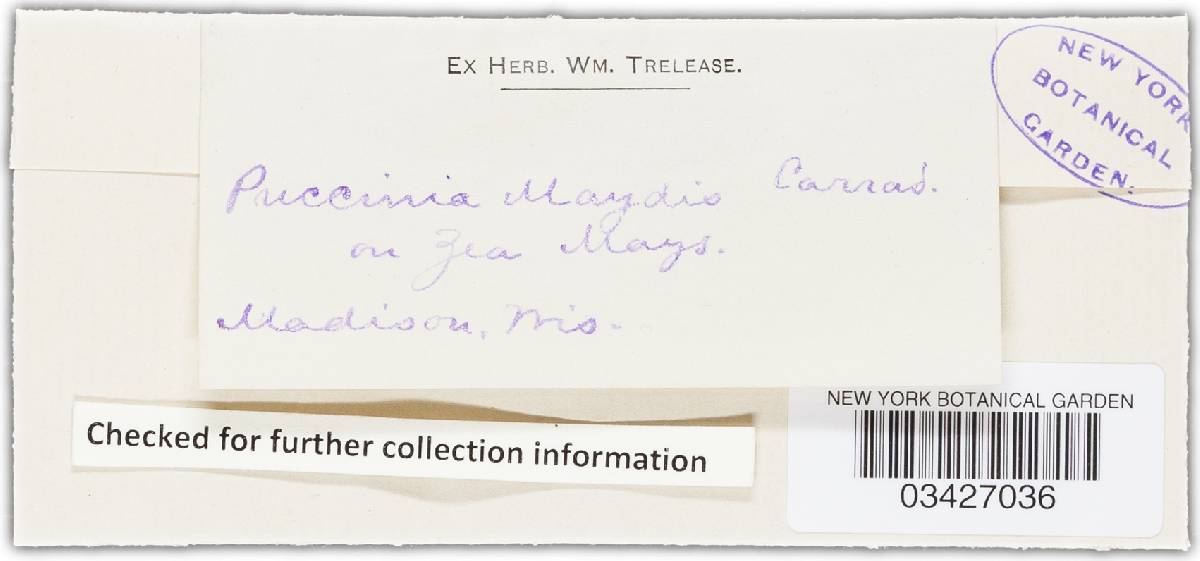 EX HERB. WM. TRELEASE.
NEW YORK
BOTANICAL
GARDEN.
Puccinia Maydis Carrad.
on Zea Mays.
Madison, Wis.
Checked for further collection information
NEW YORK BOTANICAL GARDEN
03427036